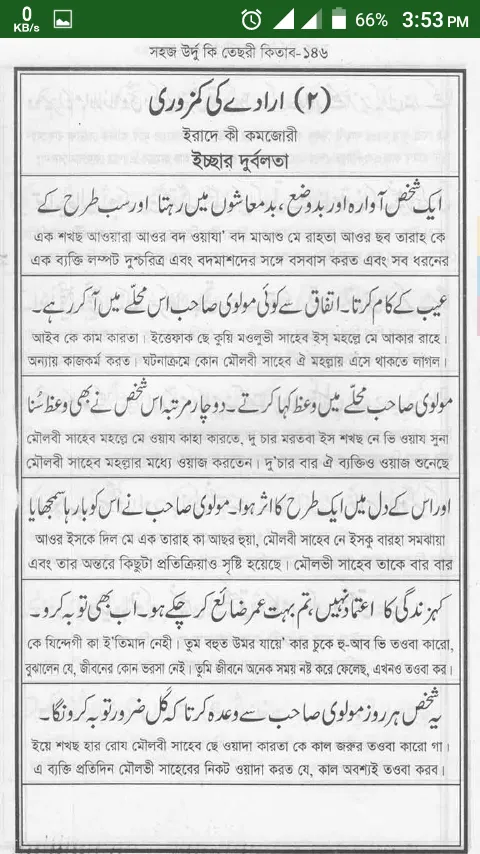 0
KB/s
66%
3:53 PM
সহজ উর্দু কি তেছরী কিতাব-১৪৬
(۲) ارادے کی کمزوری
ইরাদে কী কমজোরী
ইচ্ছার দুর্বলতা
ایک شخص آوارہ اور بدوضع، بدمعاشوں میں رہتا اور سب طرح کے
এক শখছ আওয়ারা আওর বদ ওয়াযা’ বদ মাআশু মে রাহতা আওর ছব তারাহ কে
এক ব্যক্তি লম্পট দুশ্চরিত্র এবং বদমাশদের সঙ্গে বসবাস করত এবং সব ধরনের
عیب کے کام کرتا۔ اتفاق سے کوئی مولوی صاحب اس محلّے میں آ کر رہے۔
আইব কে কাম কারতা। ইত্তেফাক ছে কুয়ি মওলুভী সাহেব ইস্ মহল্লে মে আকার রাহে।
অন্যায় কাজকর্ম করত। ঘটনাক্রমে কোন মৌলবী সাহেব ঐ মহল্লায় এসে থাকতে লাগল।
مولوی صاحب محلّے میں وعظ کہا کرتے۔ دو چار مرتبہ اس شخص نے بھی وعظ سُنا
মৌলবী সাহেব মহল্লে মে ওয়ায কাহা কারতে, দু চার মরতবা ইস শখছ নে ভি ওয়ায সুনা
মৌলবী সাহেব মহল্লার মধ্যে ওয়াজ করতেন। দু’চার বার ঐ ব্যক্তিও ওয়াজ শুনেছে
اور اس کے دل میں ایک طرح کا اثر ہوا۔ مولوی صاحب نے اس کو بارہا سمجھایا
আওর ইসকে দিল মে এক তারাহ কা আছর হুয়া, মৌলবী সাহেব নে ইসকু বারহা সমঝায়া
এবং তার অন্তরে কিছুটা প্রতিক্রিয়াও সৃষ্টি হয়েছে। মৌলভী সাহেব তাকে বার বার
کہ زندگی کا اعتماد نہیں، تم بہت عمر ضائع کر چکے ہو۔ اب بھی توبہ کرو۔
কে যিন্দেগী কা ই’তিমাদ নেহী। তুম বহুত উমর যায়ে’ কার চুকে হু-আব ভি তওবা কারো,
বুঝালেন যে, জীবনের কোন ভরসা নেই। তুমি জীবনে অনেক সময় নষ্ট করে ফেলেছ, এখনও তওবা কর।
یہ شخص ہر روز مولوی صاحب سے وعدہ کرتا کہ کَل ضرور توبہ کرونگا۔
ইয়ে শখছ হার রোয মৌলবী সাহেব ছে ওয়াদা কারতা কে কাল জরুর তওবা কারো গা।
এ ব্যক্তি প্রতিদিন মৌলভী সাহেবের নিকট ওয়াদা করত যে, কাল অবশ্যই তওবা করব।